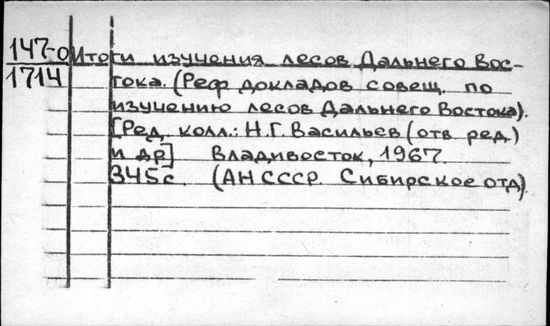 147-0 Итоги изучения лесов Дальнего Вос-
1714 тока. (Реф докладов совещ. по
изучению лесов Дальнего Востока).
[Ред. колл.: Н.Г. Васильев (отв ред.)
и др] Владивосток, 1967.
345с. (АН СССР. Сибирское отд)